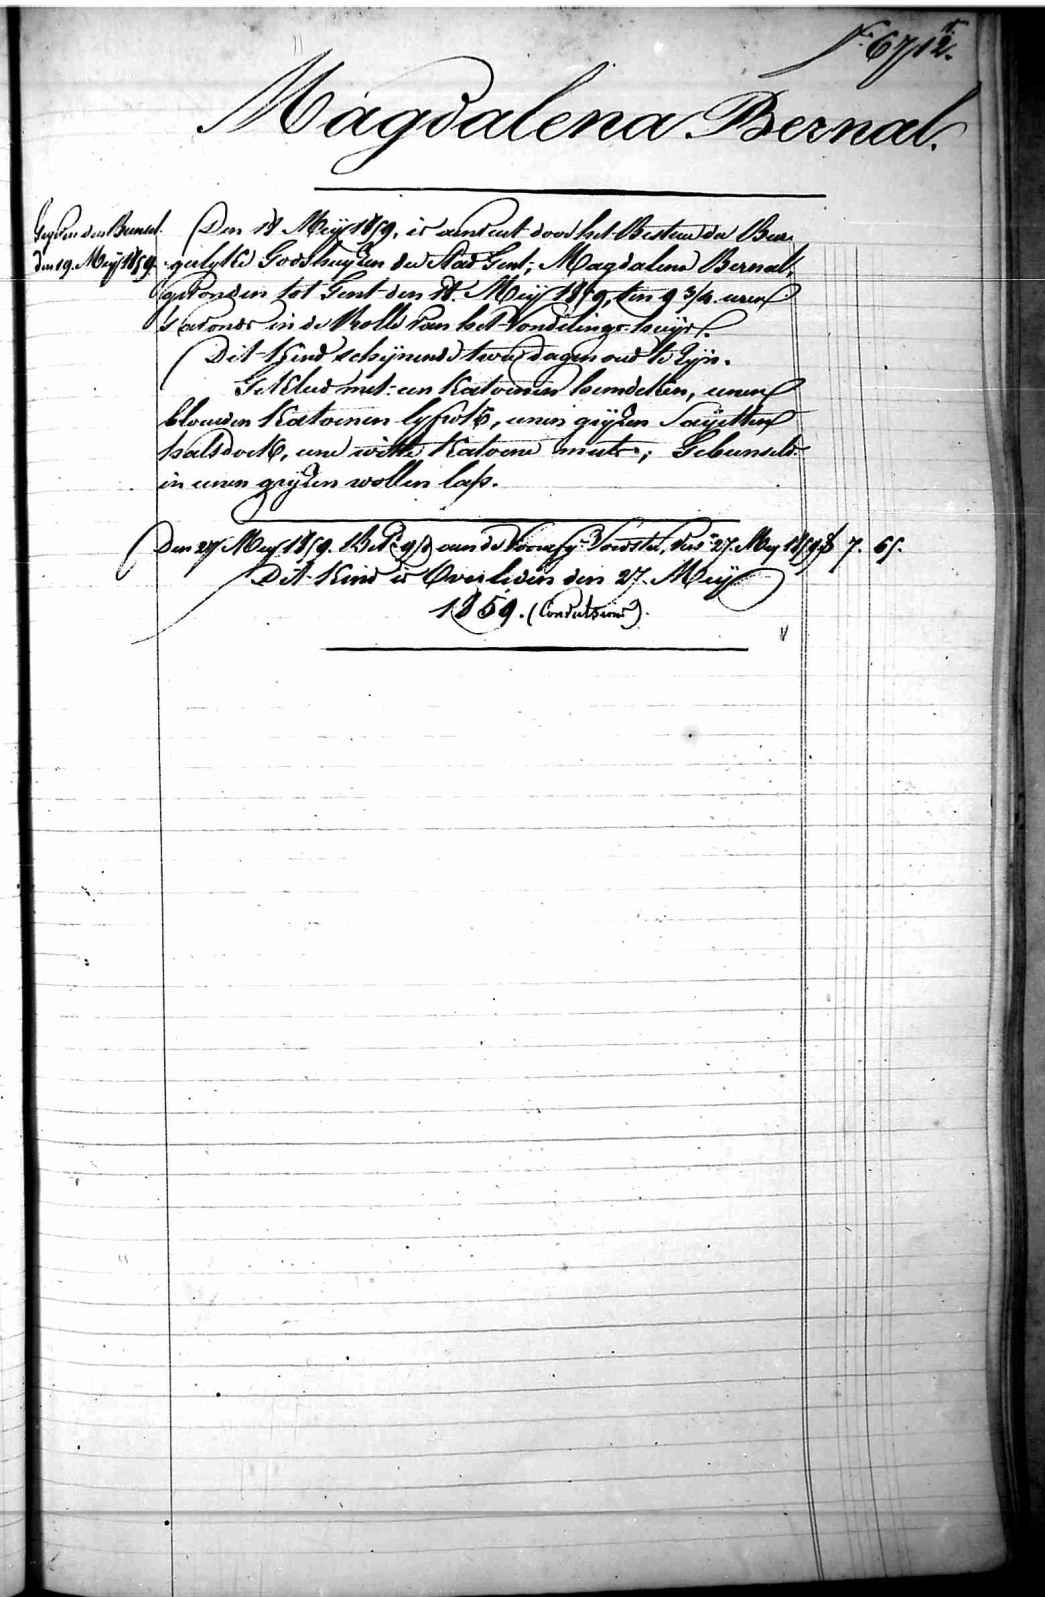 N.° 6712.
Magdalena Bernal.
Den 18 Meij 1859, is aenveert door het Bestuer der Bur-
den 19. Meij 1859.
gerlyke Godshuyzen der Stad Gent, Magdalena Bernal,
gevonden tot Gent den 18. Meij 1859, ten 9 3/4 uren
's avonds in de Rolle van het Vondelings-huijs.
Dit Kind schijnende twee dagen oud te zijn.
Gekleed met een Katoenen hemdeken, eenen
blauwen Katoenen lyfrok, eenen grijzen Sayetten
halsdoek, eene witte Katoene muts; Gebunseld
in eenen grijzen wollen lap.
Den 27 Meij 1859. aan de Voedster, 27. Meij 1859 7. 65.
Dit Kind is Overleden den 27. Meij
1859. (Convulsions).